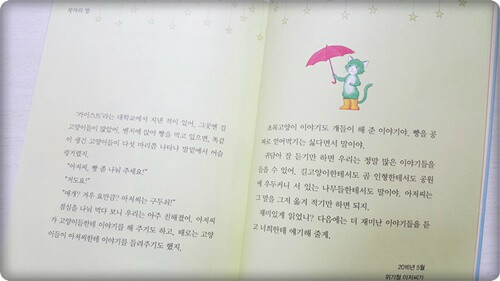 작가의 말
'카이스트'라는 대학교에서 지낸 적이 있어. 그곳엔 길
고양이들이 많았어. 벤치에 앉아 빵을 먹고 있으면, 똑같
이 생긴 고양이들이 다섯 마리쯤 나타나 발밑에서 어슬
렁거렸지.
"아저씨, 빵 좀 나눠 주세요!"
"저도요!"
"애개? 겨우 요만큼? 아저씨는 구두쇠!"
점심을 나눠 먹다 보니 우리는 아주 친해졌어. 아저씨
가 고양이들한테 이야기를 해 주기도 하고, 때로는 고양
이들이 아저씨한테 이야기를 들려주기도 했지.
초록고양이 이야기도 걔들이 해 준 이야기야. 빵을 공
짜로 얻어먹기는 싫다면서 말이야.
귀담아 잘 듣기만 하면 우리는 정말 많은 이야기들을
들을 수 있어. 길고양이한테서도 곰 인형한테서도 공원
에 우두커니 서 있는 나무들한테서도 말이야. 아저씨는
그 말을 그저 옮겨 적기만 하면 되지.
재미있게 읽었니? 다음에는 더 재미난 이야기들을 듣
고 너희한테 얘기해 줄게.
2016년 5월
위기철 아저씨가